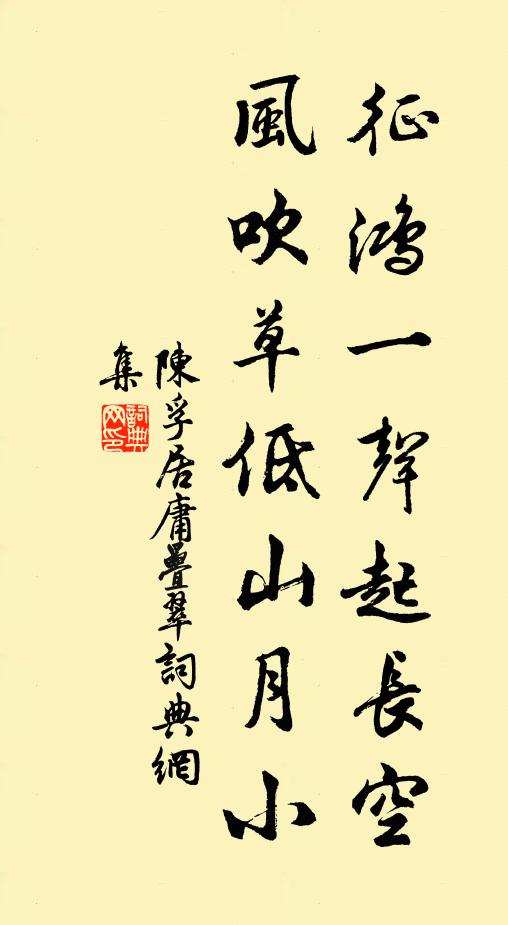 征鴻一聲起長空
風吹草低山月小
陳孚居庸疊翠詞典網
集
詞典網印